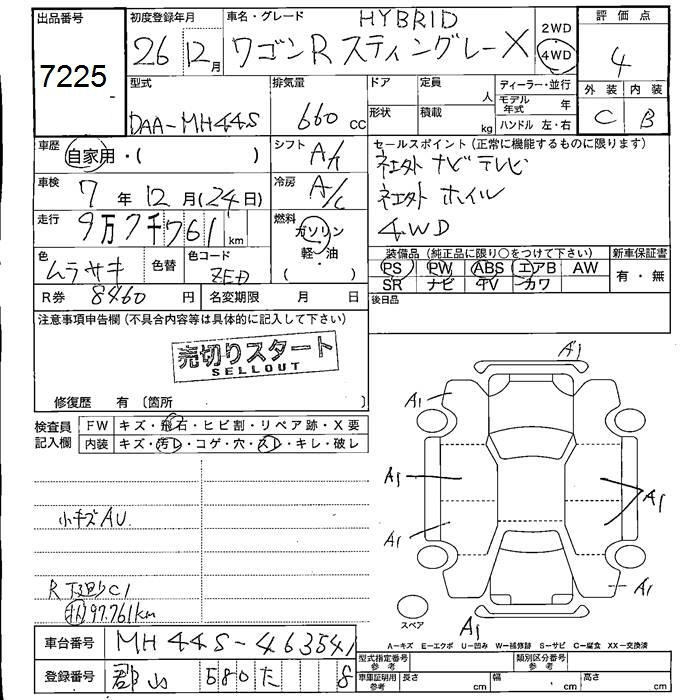 出品番号
7225
初度登録年月
26 12月
車名・グレード
HYBRID
ワゴンR スティングレー X
2WD
4WD
評価点
4
外装 内装
C B
型式
DAA-MH44S
排気量
660 cc
ドア
形状
定員
人
積載
kg
ディーラー・並行
モデル年式 年
ハンドル 左・右
車歴
自家用・( )
シフト
A/t
セールスポイント(正常に機能するものに限ります)
社外 ナビ テレビ
社外 ホイル
4WD
車検
7年 12月(24日)
冷房
A/C
走行
9万7千761 km
燃料
ガソリン
軽・油
( )
色
ムラサキ
色替
色コード
ZED
装備品(純正品に限り○をつけて下さい)
PS PW ABS エアB AW
SR ナビ TV カワ
新車保証書
有・無
R券 8460 円
名変期限 月 日
後日品
注意事項申告欄(不具合内容等は具体的に記入して下さい)
売切りスタート
SELLOUT
修復歴 有〔箇所 〕
検査員記入欄
FW キズ・飛石・ヒビ割・リペア跡・X要
内装 キズ・汚レ・コゲ・穴・スレ・キレ・破レ
小キズ AU
C1
97.761km
A1
A1
A1
A1
A1
A1
A1
スペア
A-キズ E-エクボ U-凹み W-補修跡 S-サビ C-腐食 XX-交換済
車台番号 MH44S-463541
登録番号 郡山 580 た 8
型式指定番号 参考
類別区分番号 参考
車庫証明用 参考
長さ cm
幅 cm
高さ cm